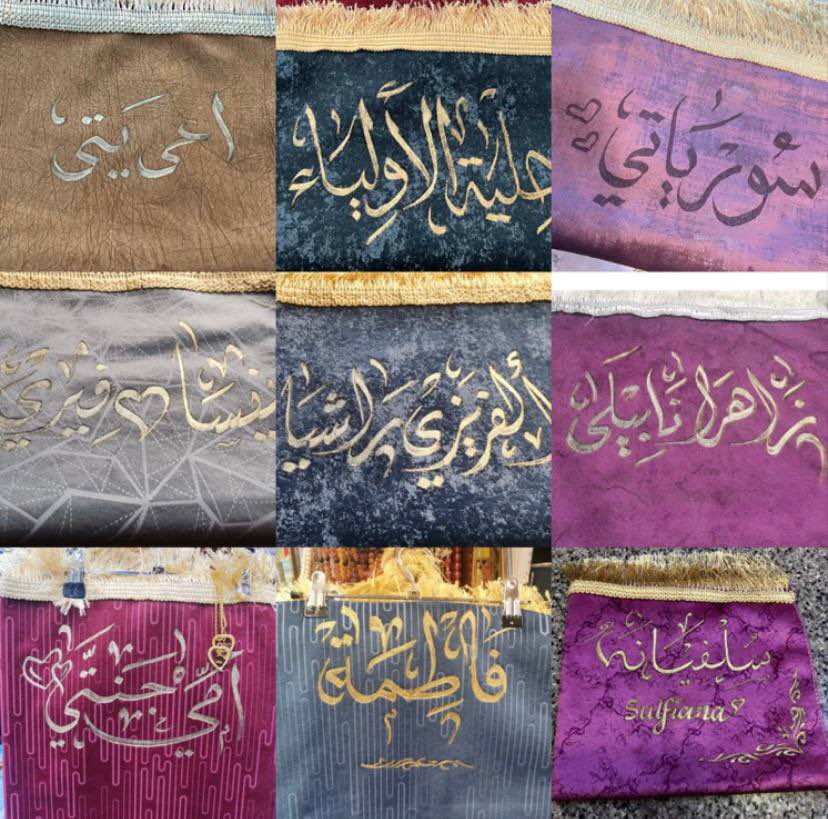 اعى يتى
حلية الأولياء
سورياتي
فيري
الفريزي راشيا
زاهرا نابيلى
أمي جنتي
فاطمة
سلفيانه
Sulfiana